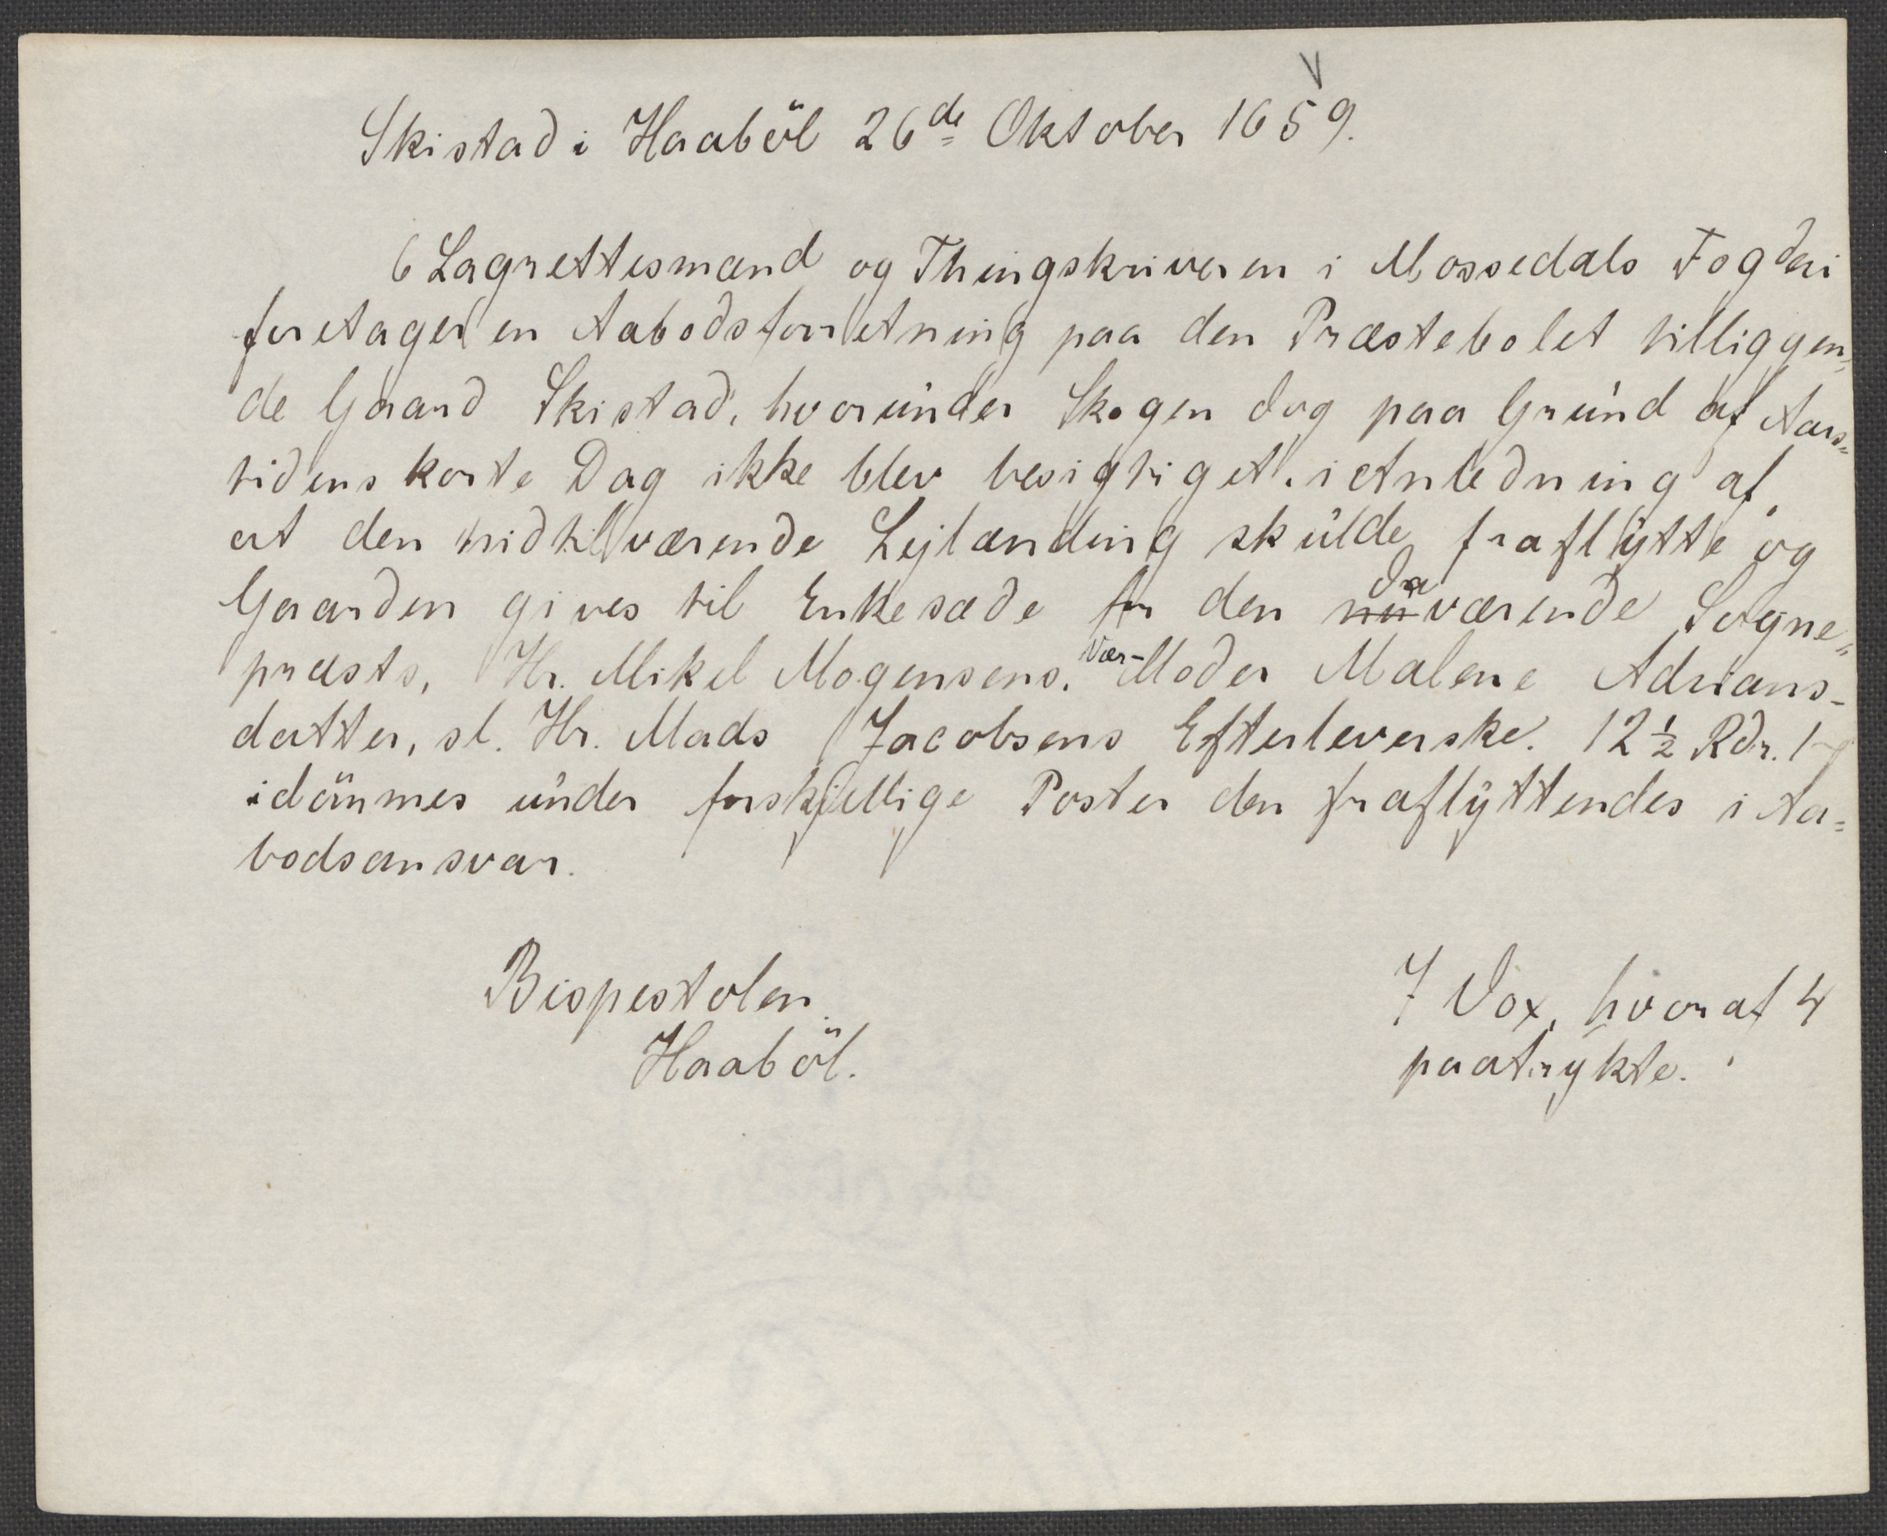 V
Skistad i Haaböl 26de Oktober 1659.
6 Lagrettesmænd og Thingskriveren i Mossedals Fogderi
foretager en Aabodsforretning paa den Præstebolet tilliggen-
de Gaard Skistad, hvorunder Skogen dog paa Grund af Aars-
tidens korte Dag ikke blev besigtiget, i Anledning af
at den hidtilværende Lejlænding skulde fraflytte og
Gaarden gives til Enkesæde for den nu da værende Sogne-
præsts, Hr. Mikel Mogensens, Vær-Moder Malene Adrians-
datter, sl. Hr. Mads Jacobsens Efterleverske. 12 ½ Rdr.
idömmes under forskjellige Poster den fraflyttendes i Aa-
bodsansvar.
Bispestolen.
Haaböl.
7 Vox, hvoraf 4
paatrykte.